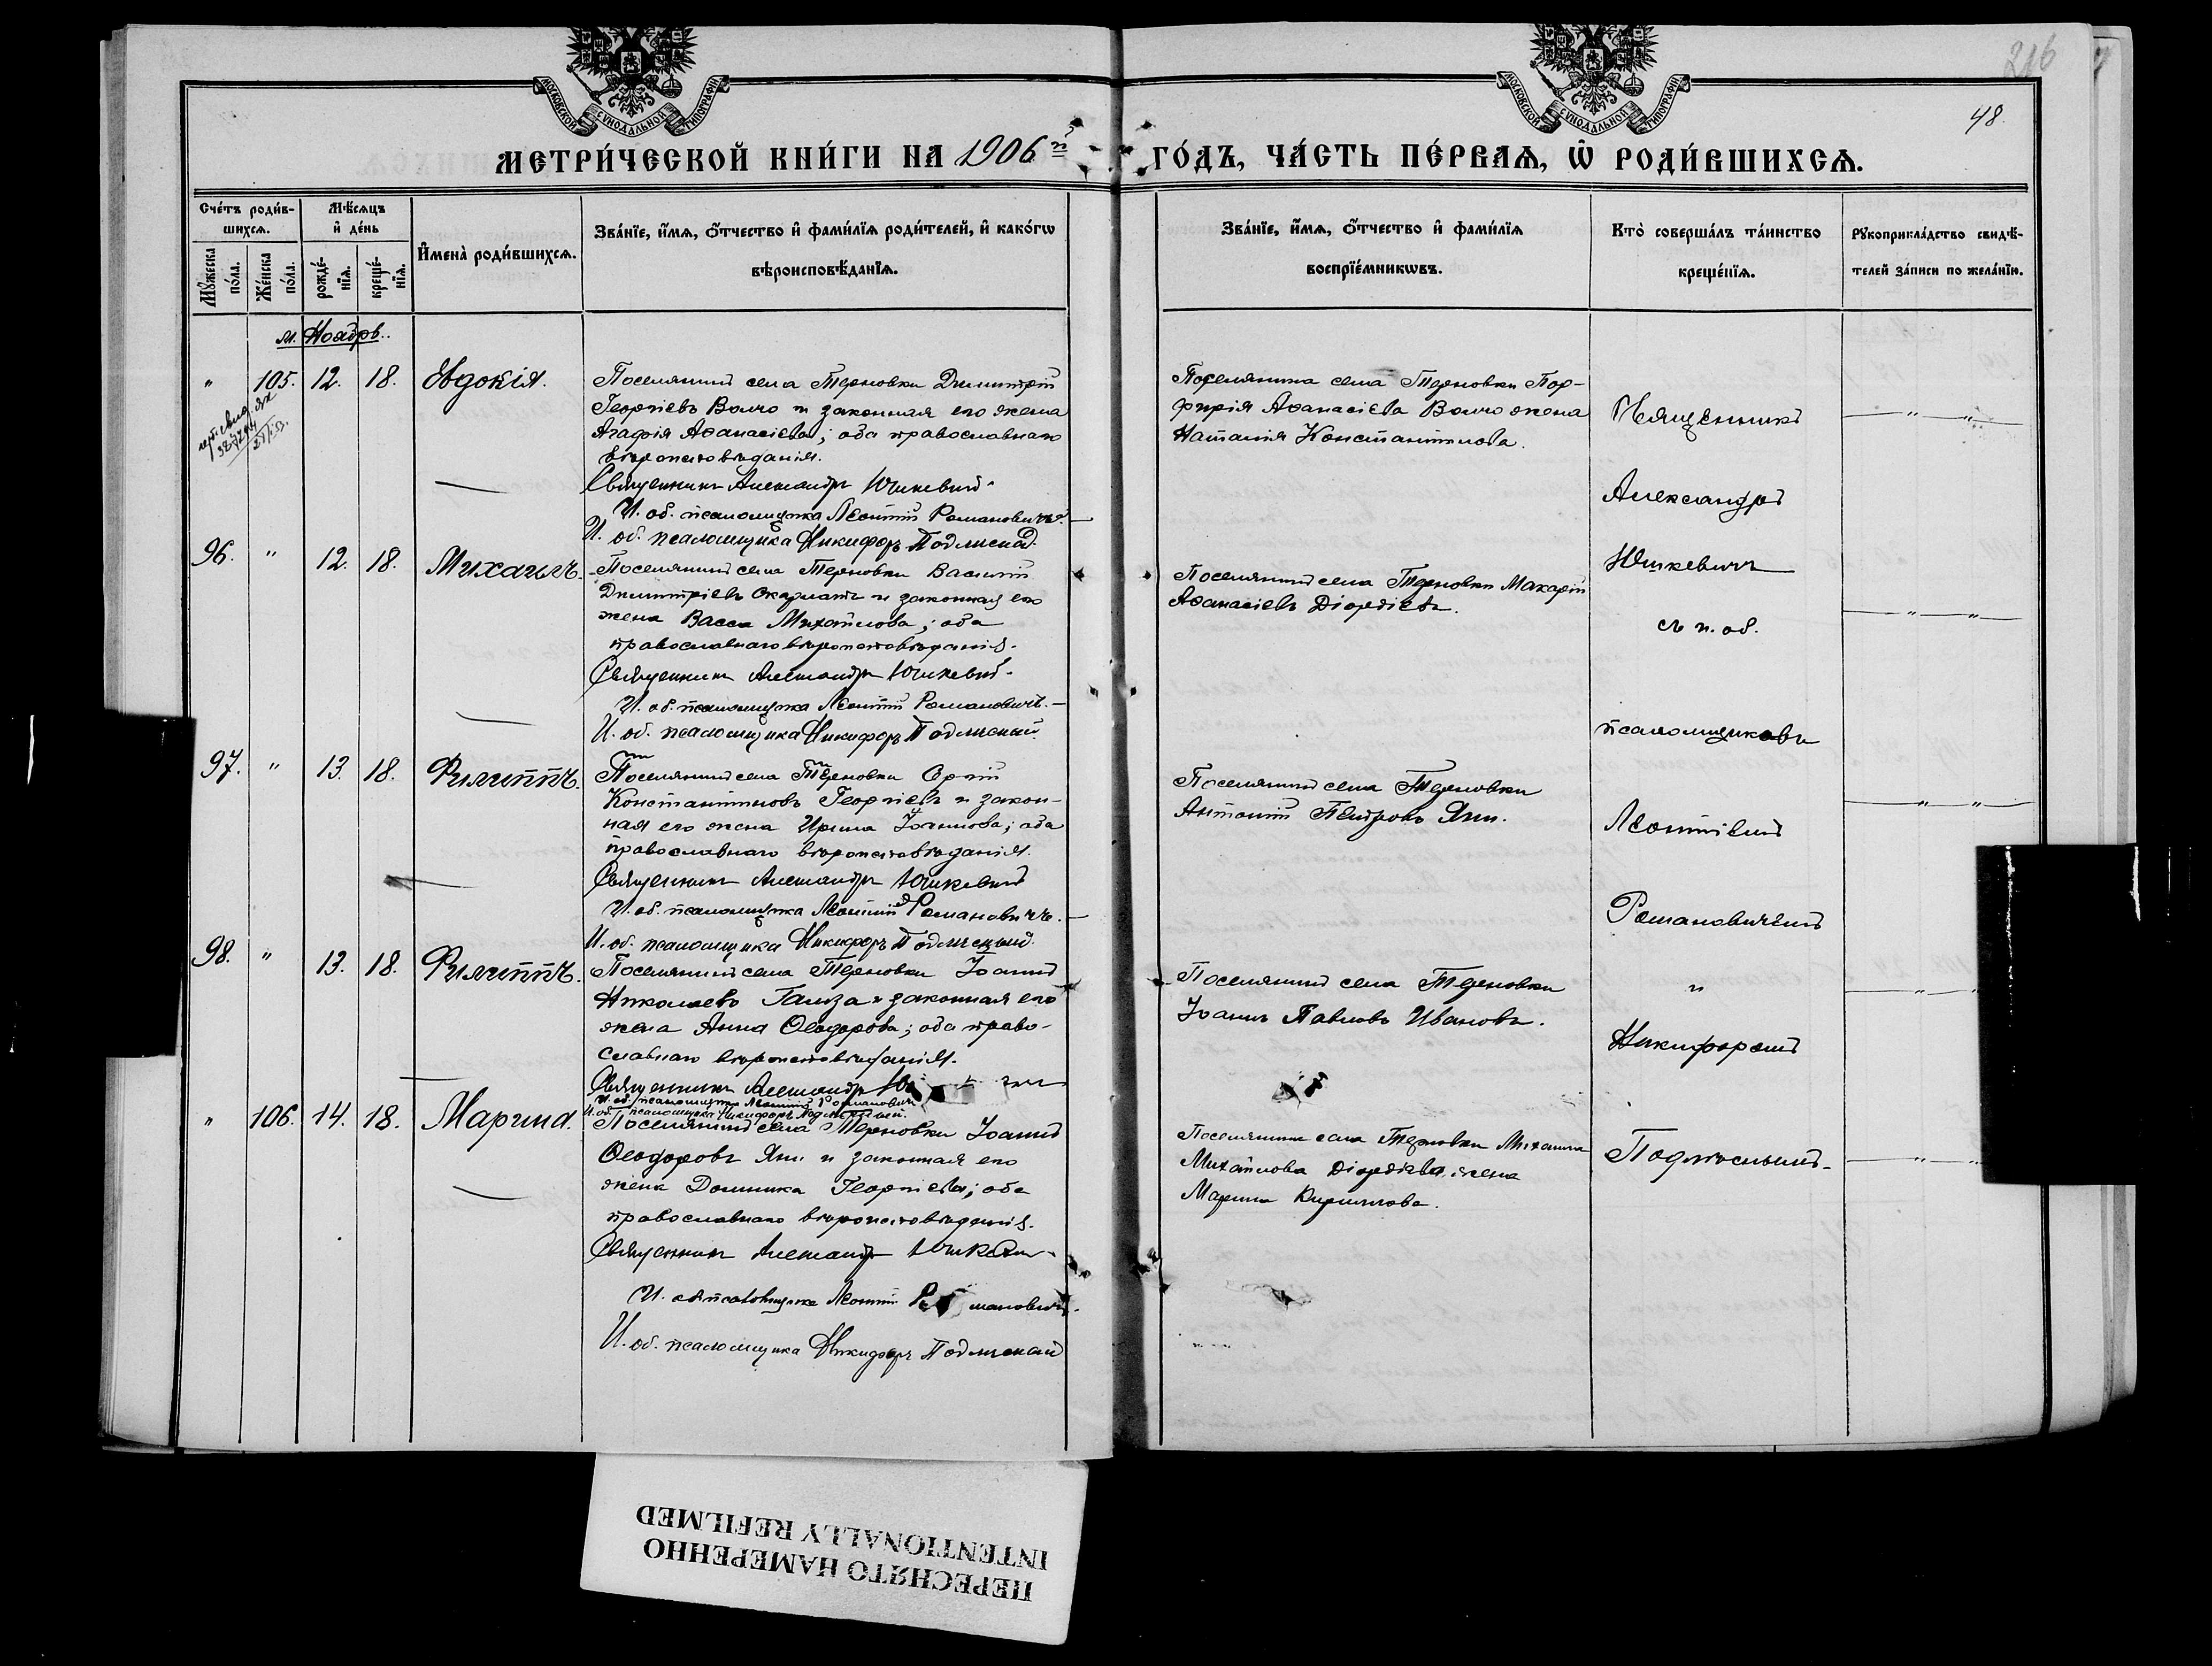 216
48.
МОСКОВСКОЙ СѴНОДАЛЬНОЙ ТИПОГРАФІИ
МОСКОВСКОЙ СѴНОДАЛЬНОЙ ТИПОГРАФІИ
МЕТРИ́ЧЕСКОЙ КНИ́ГИ НА 1906й ГО́ДЪ, ЧА́СТЬ ПЕ́РВАѦ, Ѽ РОДИ́ВШИХСѦ.
Сче́тъ роди́вшихсѧ.
Мꙋ́жеска по́ла.
Же́нска по́ла.
Мѣ́сѧцъ и҆ де́нь
рожде́нїѧ.
креще́нїѧ.
И҆мена̀ роди́вшихсѧ.
Зва́нїе, и҆́мѧ, ѻ҆́тчество и҆ фами́лїѧ роди́телей, и҆ како́гѡ
вѣроисповѣ́данїѧ.
Зва́нїе, и҆́мѧ, ѻ҆́тчество и҆ фами́лїѧ
воспрїе́мникѡвъ.
Кто̀ соверша́лъ та́инство
креще́нїѧ.
Рꙋкоприкла́дство свидѣ́-
телей за́писи по жела́нїю.
м. Ноябрь.
" 105. 12. 18. Евдокія.
Поселянинъ села Терновки Димитрій
Георгіевъ Волчо и законная его жена
Агафія Аѳанасіева; оба православнаго
вѣроисповѣданія.
Священникъ Александръ Юшкевичъ.
И. об. псаломщика Леонтій Романовичъ.
И. об. псаломщика Никифоръ Подлѣсный.
Поселянина села Терновки Пор-
фирія Аѳанасіева Волчо жена
Наталія Константинова.
96. " 12. 18. Михаилъ.
Поселянинъ села Терновки Василій
Димитріевъ Скарлатъ и законная его
жена Васса Михайлова; оба
православнаго вѣроисповѣданія.
Священникъ Александръ Юшкевичъ.
И. об. псаломщика Леонтій Романовичъ.
И. об. псаломщика Никифоръ Подлѣсный.
Поселянинъ села Терновки Макарій
Аѳанасіевъ Діордіевъ.
97. " 13. 18. Филиппъ.
Поселянинъ села Терновки Сергій
Константиновъ Георгіевъ и закон-
ная его жена Ирина Іоаннова; оба
православнаго вѣроисповѣданія.
Священникъ Александръ Юшкевичъ
И. об. псаломщика Леонтій Романовичъ.
И. об. псаломщика Никифоръ Подлѣсный.
Поселянинъ села Терновки
Антоній Петровъ Яни.
98. " 13. 18. Филиппъ.
Поселянинъ села Терновки Іоаннъ
Николаевъ Гальза и законная его
жена Анна Ѳеодорова; оба право-
славнаго вѣроисповѣданія.
Священникъ Александръ
И. об. псаломщика Леонтій Романовичъ
И. об. псаломщика Никифоръ Подлѣсный.
Поселянинъ села Терновки
Іоаннъ Павловъ Ивановъ.
" 106. 14. 18. Марина.
Поселянинъ села Терновки Іоаннъ
Ѳеодоровъ Яни и законная его
жена Домника Георгіева; оба
православнаго вѣроисповѣданія.
Священникъ Александръ Юшкевичъ.
И. об. псаломщика Леонтій Романовичъ.
И. об. псаломщика Никифоръ Подлѣсный
Поселянина села Терновки Михаила
Михайлова Діордіева жена
Марина Кириллова.
Священникъ
Александръ
Юшкевичъ
съ и. об.
псаломщиковъ
Леонтіемъ
Романовичемъ
и
Никифоромъ
Подлѣснымъ.
ПЕРЕСНЯТО НАМЕРЕННО
INTENTIONALLY REFILMED